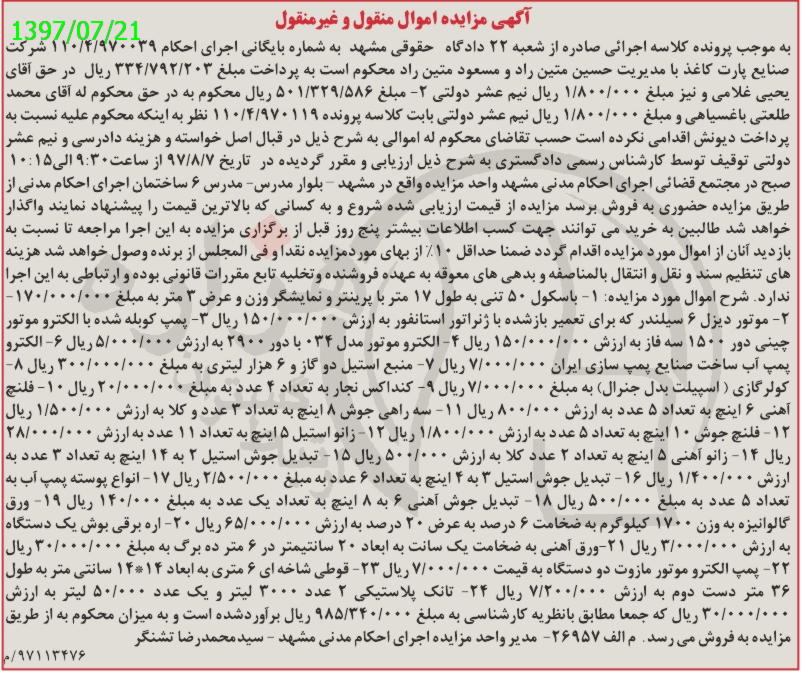 آگهی مزایده اموال منقول و غیرمنقول
1397/07/21
به موجب پرونده کلاسه اجرائی صادره از شعبه ۲۲ دادگاه حقوقی مشهد به شماره بایگانی اجرای احکام ۱۱۰/۴/۹۷۰۰۳۹ شرکت
صنایع پارت کاغذ با مدیریت حسین متین راد و مسعود متین راد محکوم است به پرداخت مبلغ ۳۳۴/۷۹۲/۲۰۳ ریال در حق آقای
یحیی غلامی و نیز مبلغ ۱/۸۰۰/۰۰۰ ریال نیم عشر دولتی ۲- مبلغ ۵۰۱/۳۲۹/۵۸۶ ریال محکوم به در حق محکوم له آقای محمد
طلعتی باغسیاهی و مبلغ ۱/۸۰۰/۰۰۰ ریال نیم عشر دولتی بابت کلاسه پرونده ۱۱۰/۴/۹۷۰۱۱۹ نظر به اینکه محکوم علیه نسبت به
پرداخت دیونش اقدامی نکرده است حسب تقاضای محکوم له اموالی به شرح ذیل در قبال اصل خواسته و هزینه دادرسی و نیم عشر
دولتی توقیف توسط کارشناس رسمی دادگستری به شرح ذیل ارزیابی و مقرر گردیده در تاریخ ۹۷/۸/۷ از ساعت۹:۳۰ الی۱۰:۱۵
صبح در مجتمع قضائی اجرای احکام مدنی مشهد واحد مزایده واقع در مشهد – بلوار مدرس- مدرس ۶ ساختمان اجرای احکام مدنی از
طریق مزایده حضوری به فروش برسد مزایده از قیمت ارزیابی شده شروع و به کسانی که بالاترین قیمت را پیشنهاد نمایند واگذار
خواهد شد طالبین به خرید می توانند جهت کسب اطلاعات بیشتر پنج روز قبل از برگزاری مزایده به این اجرا مراجعه تا نسبت به
بازدید آنان از اموال مورد مزایده اقدام گردد ضمنا حداقل ۱۰٪ از بهای موردمزایده نقدا و فی المجلس از برنده وصول خواهد شد هزینه
های تنظیم سند و نقل و انتقال بالمناصفه و بدهی های معوقه به عهده فروشنده وتخلیه تابع مقررات قانونی بوده و ارتباطی به این اجرا
ندارد. شرح اموال مورد مزایده: ۱- باسکول ۵۰ تنی به طول ۱۷ متر با پرینتر و نمایشگر وزن و عرض ۳ متر به مبلغ ۱۷۰/۰۰۰/۰۰۰-
۲- موتور دیزل ۶ سیلندر که برای تعمیر بازشده با ژنراتور استانفور به ارزش ۱۵۰/۰۰۰/۰۰۰ ریال ۳- پمپ کوبله شده با الکترو موتور
چینی دور ۱۵۰۰ سه فاز به ارزش ۱۵۰/۰۰۰/۰۰۰ ریال ۴- الکترو موتور مدل ۰۳۴ با دور ۲۹۰۰ به ارزش ۵/۰۰۰/۰۰۰ ریال ۶- الکترو
پمپ آب ساخت صنایع پمپ سازی ایران ۷/۰۰۰/۰۰۰ ریال ۷- منبع استیل دو گاز و ۶ هزار لیتری به مبلغ ۳۰۰/۰۰۰/۰۰۰ ریال ۸-
کولرگازی ( اسپیلت بدل جنرال) به مبلغ ۷/۰۰۰/۰۰۰ ریال ۹- کنداکس نجار به تعداد ۴ عدد به مبلغ ۲۰/۰۰۰/۰۰۰ ریال ۱۰- فلنچ
آهنی ۶ اینچ به تعداد ۵ عدد به ارزش ۸۰۰/۰۰۰ ریال ۱۱- سه راهی جوش ۸ اینچ به تعداد ۳ عدد و کلا به ارزش ۱/۵۰۰/۰۰۰ ریال
۱۲- فلنچ جوش ۱۰ اینچ به تعداد ۵ عدد به ارزش ۱/۸۰۰/۰۰۰ ریال ۱۲- زانو استیل ۵ اینچ به تعداد ۱۱ عدد به ارزش ۲۸/۰۰۰/۰۰۰
ریال ۱۴- زانو آهنی ۵ اینچ به تعداد ۲ عدد کلا به ارزش ۵۰۰/۰۰۰ ریال ۱۵- تبدیل جوش استیل ۲ به ۱۴ اینچ به تعداد ۳ عدد به
ارزش ۱/۴۰۰/۰۰۰ ریال ۱۶- تبدیل جوش استیل ۳ به ۴ اینچ به تعداد ۶ عدد به مبلغ ۲/۵۰۰/۰۰۰ ریال ۱۷- انواع پوسته پمپ آب به
تعداد ۵ عدد به مبلغ ۵۰۰/۰۰۰ ریال ۱۸- تبدیل جوش آهنی ۶ به ۸ اینچ به تعداد یک عدد به مبلغ ۱۴۰/۰۰۰ ریال ۱۹- ورق
گالوانیزه به وزن ۱۷۰۰ کیلوگرم به ضخامت ۶ درصد به عرض ۲۰ درصد به ارزش ۶۵/۰۰۰/۰۰۰ ریال ۲۰- اره برقی بوش یک دستگاه
به ارزش ۳/۰۰۰/۰۰۰ ریال ۲۱-ورق آهنی به ضخامت یک سانت به ابعاد ۲۰ سانتیمتر در ۶ متر ده برگ به مبلغ ۳۰/۰۰۰/۰۰۰ ریال
۲۲- پمپ الکترو موتور مازوت دو دستگاه به قیمت ۷/۰۰۰/۰۰۰ ریال ۲۳- قوطی شاخه ای ۶ متری به ابعاد ۱۴*۱۴ سانتی متر به طول
۳۶ متر دست دوم به ارزش ۷/۲۰۰/۰۰۰ ریال ۲۴- تانک پلاستیکی ۲ عدد ۳۰۰۰ لیتر و یک عدد ۵۰/۰۰۰ لیتر به ارزش
۳۰/۰۰۰/۰۰۰ ریال که جمعا مطابق بانظریه کارشناسی به مبلغ ۹۸۵/۳۴۰/۰۰۰ ریال برآوردشده است و به میزان محکوم به از طریق
مزایده به فروش می رسد. م الف ۲۶۹۵۷- مدیر واحد مزایده اجرای احکام مدنی مشهد – سیدمحمدرضا تشنگر
۹۷۱۱۳۴۷۶/م